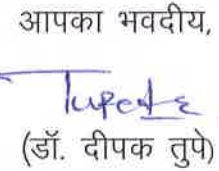 आपका भवदीय,
(डॉ. दीपक तुपे)